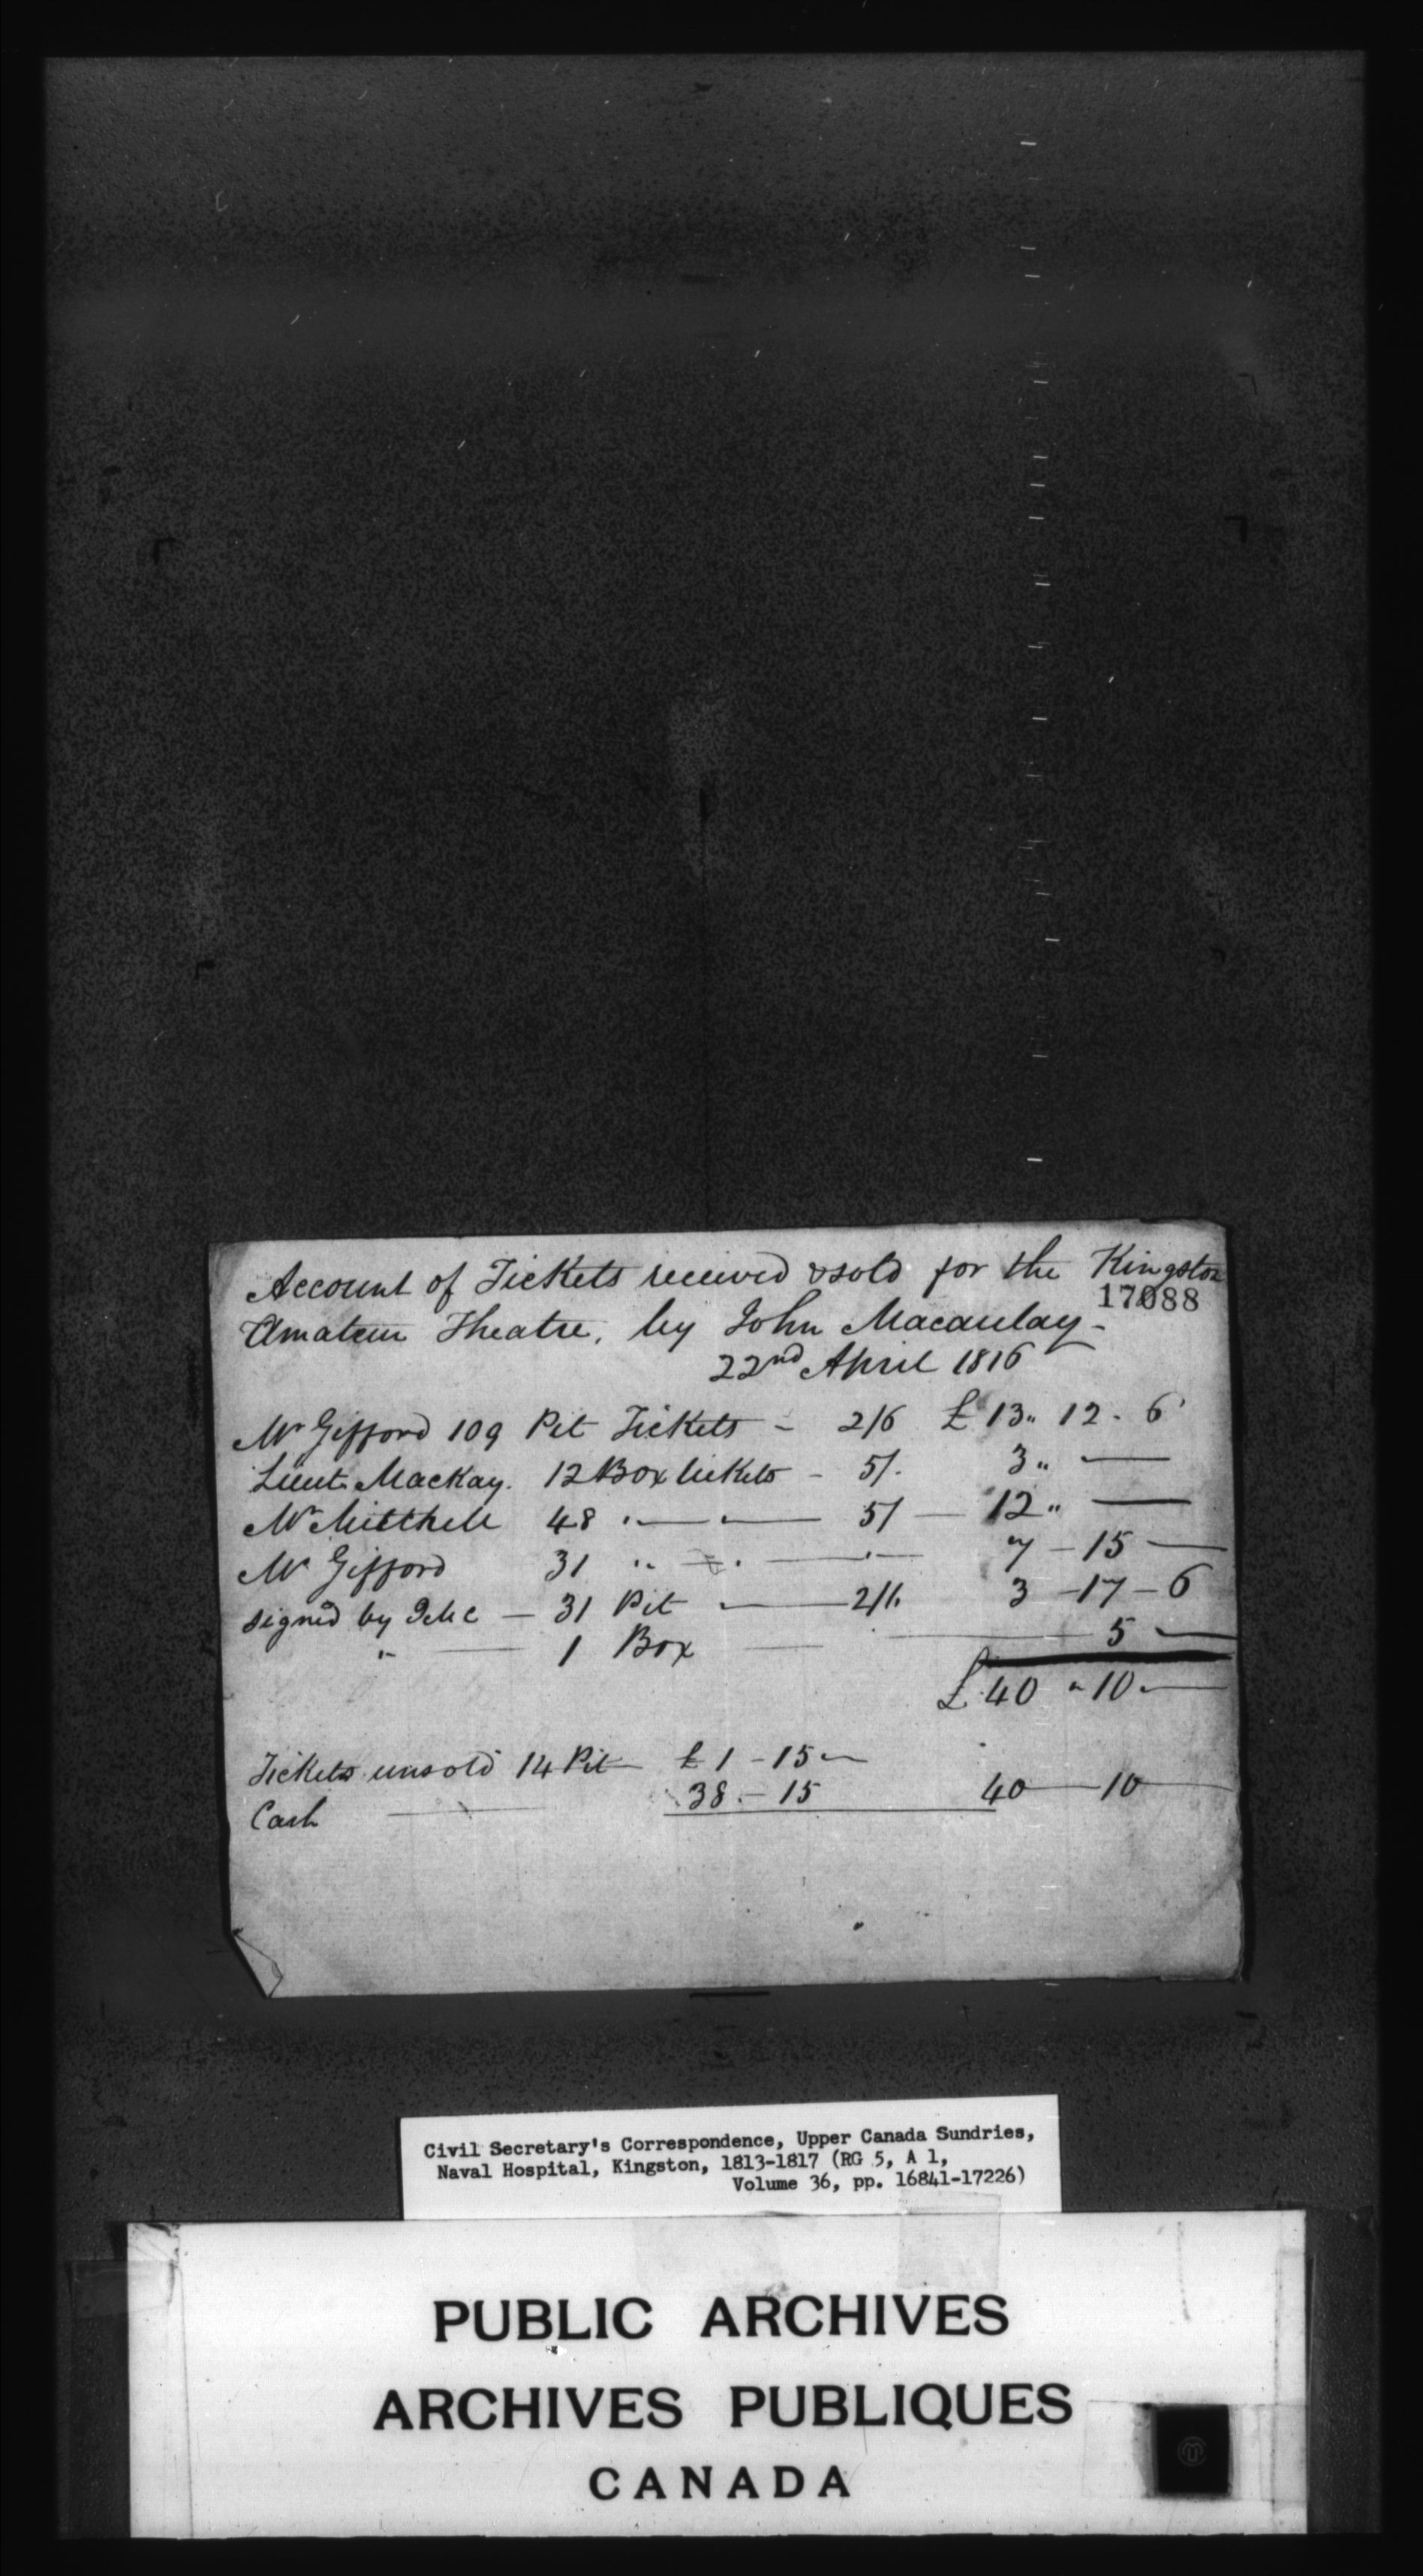 Account of Tickets received & sold for the Kingston
17088
Amateur Theatre, by John Macaulay -
22nd April 1816
Mr Gifford 109 Pit Tickets - 2/6 £ 13 " 12 - 6
Lieut. Mackay. 12 Box tickets - 5/. 3 " —
Mr Mitchell 48 " — " — 5/ — 12 " —
Mr Gifford 31 " — " — " — 7 - 15 —
signed by — 31 Pit — 2/6. 3 - 17 - 6
" — 1 Box — 5 —
£ 40 " 10 —
Tickets unsold 14 Pit £ 1 - 15 —
Cash — 38 - 15 40 — 10
Civil Secretary's Correspondence, Upper Canada Sundries,
Naval Hospital, Kingston, 1813-1817 (RG 5, A 1,
Volume 36, pp. 16841-17226)
PUBLIC ARCHIVES
ARCHIVES PUBLIQUES
CANADA